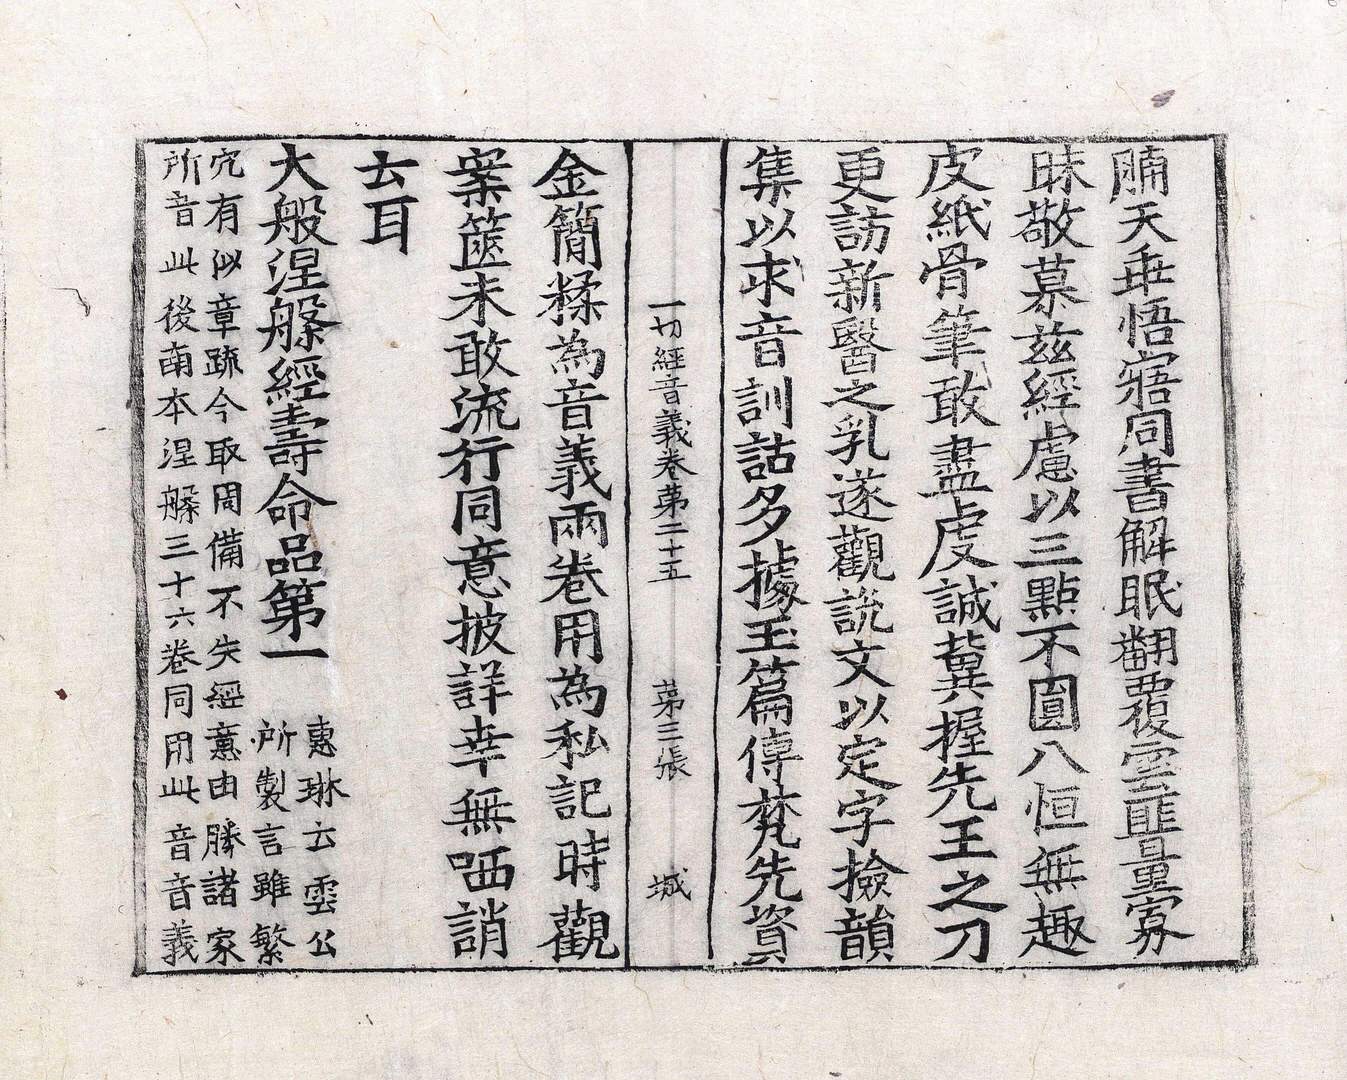 腩天乖悟寤同書解眠翻覆雲匪量寡
昧敬慕茲經慮以三點不圓八恒無趣
皮紙骨筆敢盡虔誠冀握先王之刀
更訪新醫之乳遂觀說文以定字撿韻
集以求音訓詁多據玉篇傳梵先資
一切經音義卷第二十五 第三張 城
金簡糅為音義兩卷用為私記時觀
案篋未敢流行同意披詳幸無哂誚
云耳
大般涅槃經壽命品第一 惠琳云雲公
所製言雖繁
冗有似章疏今取周備不失經意由勝諸家
所音此後南本涅槃三十六卷同用此音音義